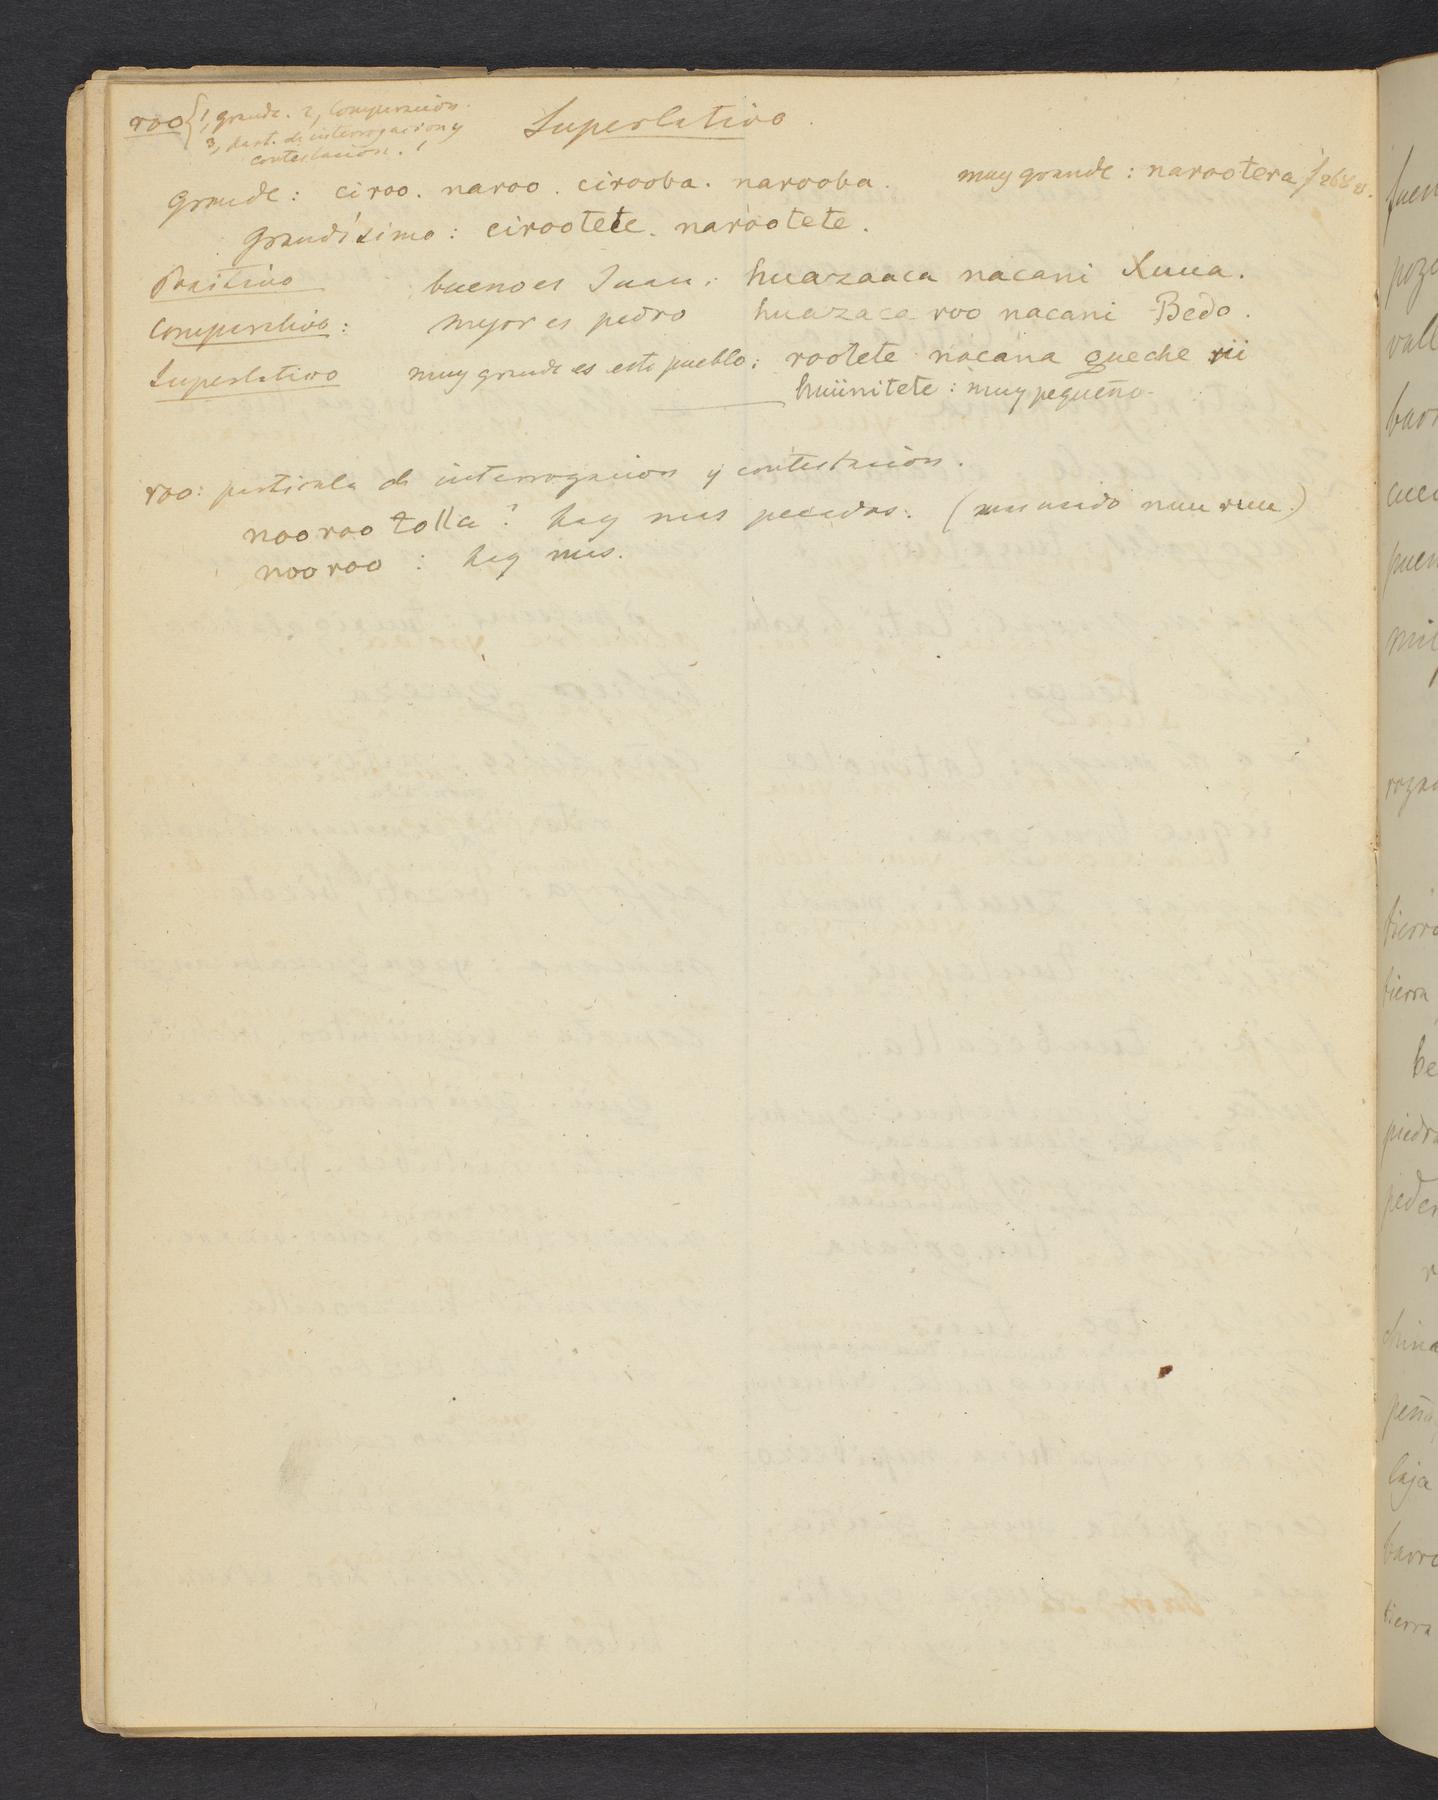 roo { 1, grande. 2, Comparación.
3, part. de interrogacion y
contestación.
Superlativo.
grande: ciroo. naroo. cirooba. narooba. muy grande: narootera
grandísimo: cirootete. narootete.
Positivo bueno es Juan: huazaaca nacani Xuua.
Comparativo: mejor es pedro huazaca roo nacani Bedo.
Superlativo muy grande es este pueblo: rootete nacana queche rii
huiinitete: muy pequeño.
roo: particula de interrogacion y contestacion.
nooroo tolla? hay mas pecados. (mas usado nuu ruu.)
nooroo: hay mas.
fuen
pozo
vall
barr
puen
tierra
tierra
be
piedra
peder
china
peña
laja
barro
tierra